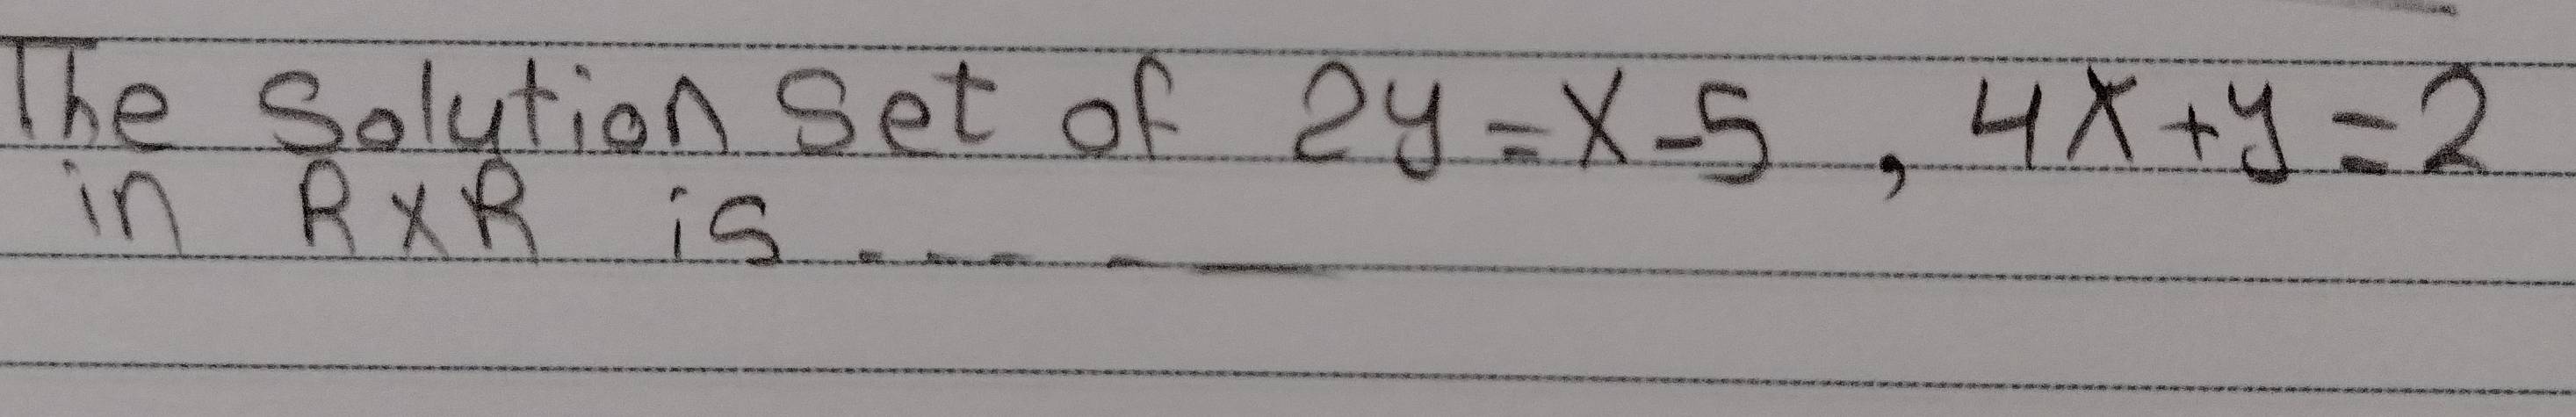 The Solution Set of 2y = x - 5 , 4x + y = 2
in R x R is - - - - —